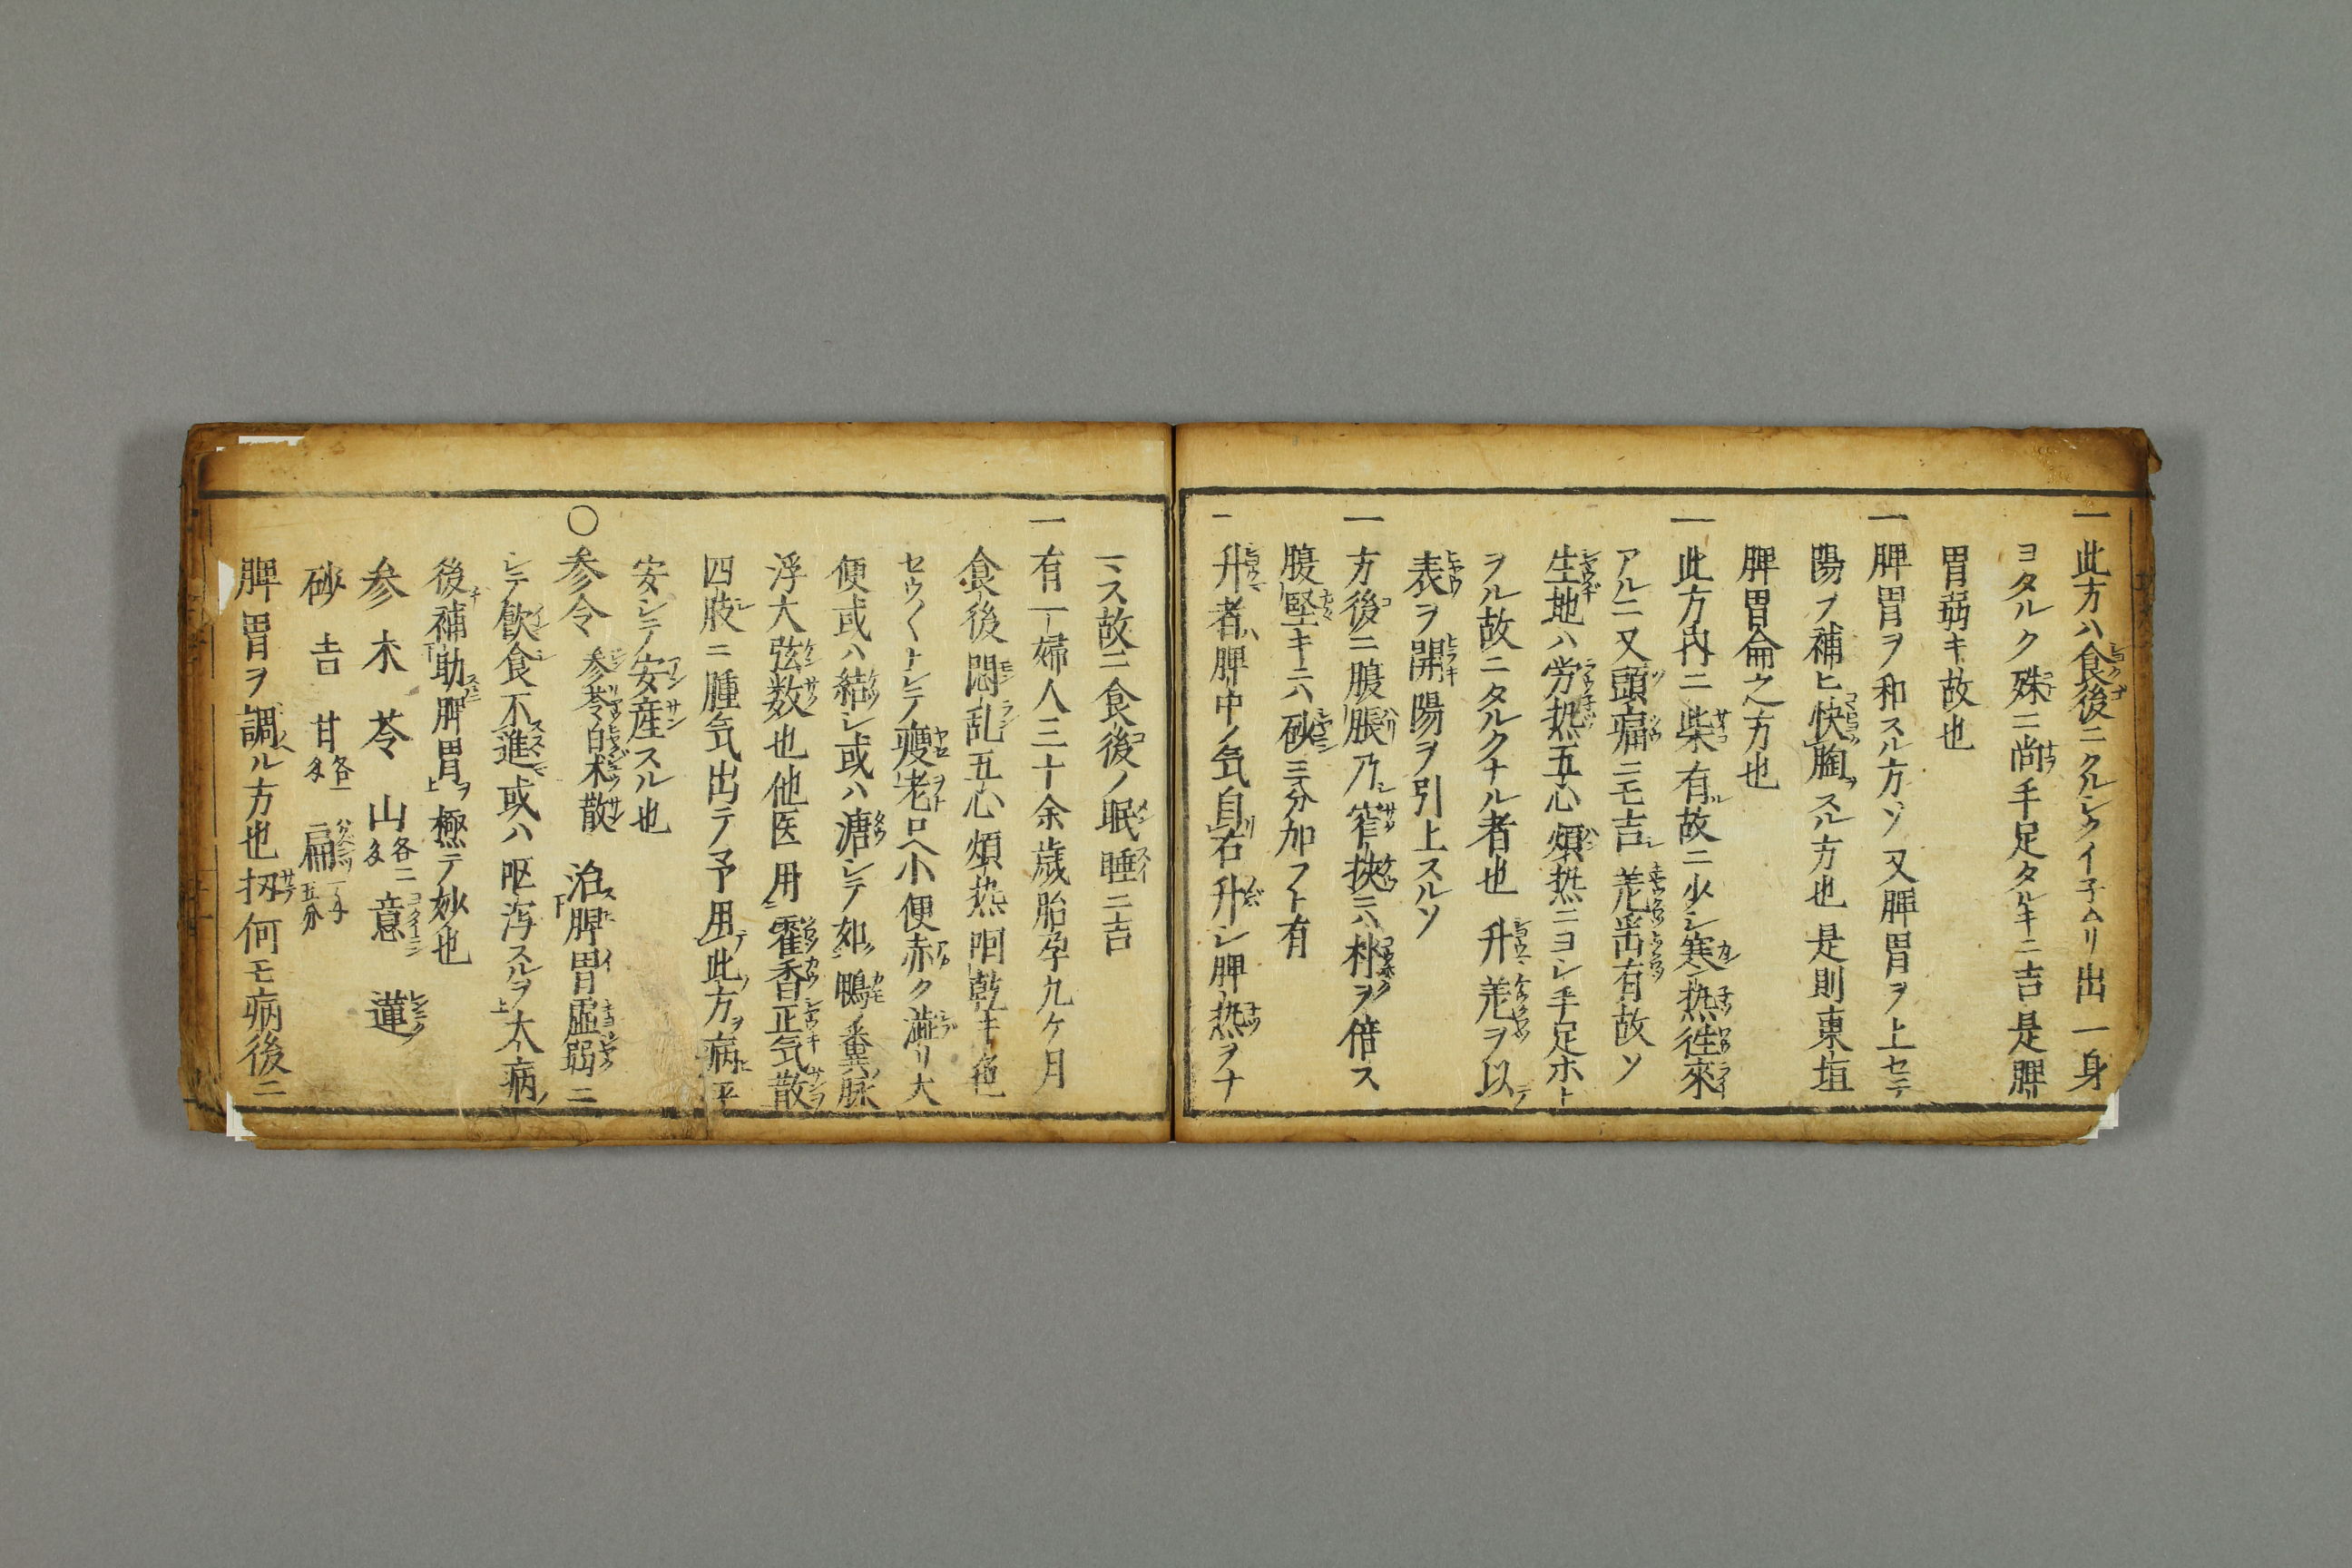 一此方ハ食後ニクルシクイ子ムリ出一身
ヨタルク殊ニ尚手足タルキニ吉是脾
胃弱キ故也
一脾胃ヲ和スル方ソ又脾胃ヲ上セテ
陽ヲ補ヒ快胸スル方也是則東垣
脾胃侖之方也
一此方内ニ柴有故ニ少シ寒热徃來
アルニ又頭痛ニモ吉羌有故ソ
生地ハ労热五心煩热ニヨシ手足ホト
ヲル故ニタルクナル者也升羌ヲ以
表ヲ開陽ヲ引上スルソ
一方後ニ腹脹乃窄狹ニハ朴ヲ倍ス
腹堅キニハ砂三分加フト有
一升者ハ脾中ノ気自右升シ脾热ヲナ
マス故ニ食後ノ眠睡ニ吉
一有一婦人三十余歳胎孕九ケ月
食後悶乱五心煩热咽乾キ色
セウ〱トシテ痩老只小便赤ク澁リ大
便或ハ結シ或ハ溏シテ如鴨ノ糞脉
浮大弦数也他医用藿香正気散
四肢ニ腫気出テ予用此方ヲ病平
安シテ安産スル也
〇参令 参苓白术散 治脾胃虚弱ニ
シテ飲食不進或ハ呕泻スルヲ大病
後補助脾胃ヲ極テ妙也
参 术 苓 山各二匁 意 蓮
砂 吉 甘各一匁 扁一匁五分
脾胃ヲ調ル方也扨何モ病後ニ